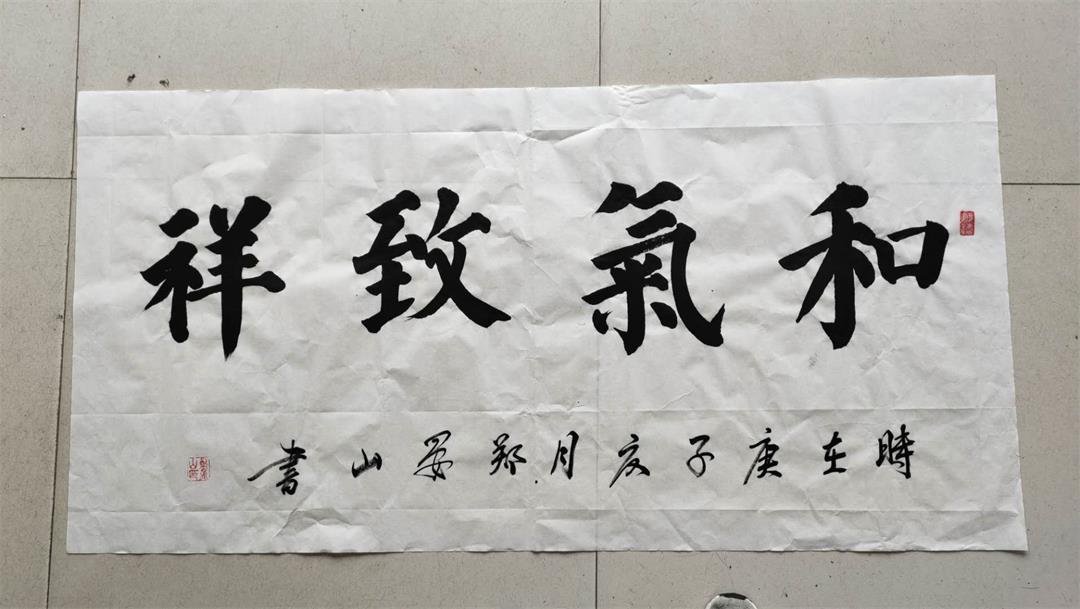 和氣致祥
時在庚子夏月郑山書